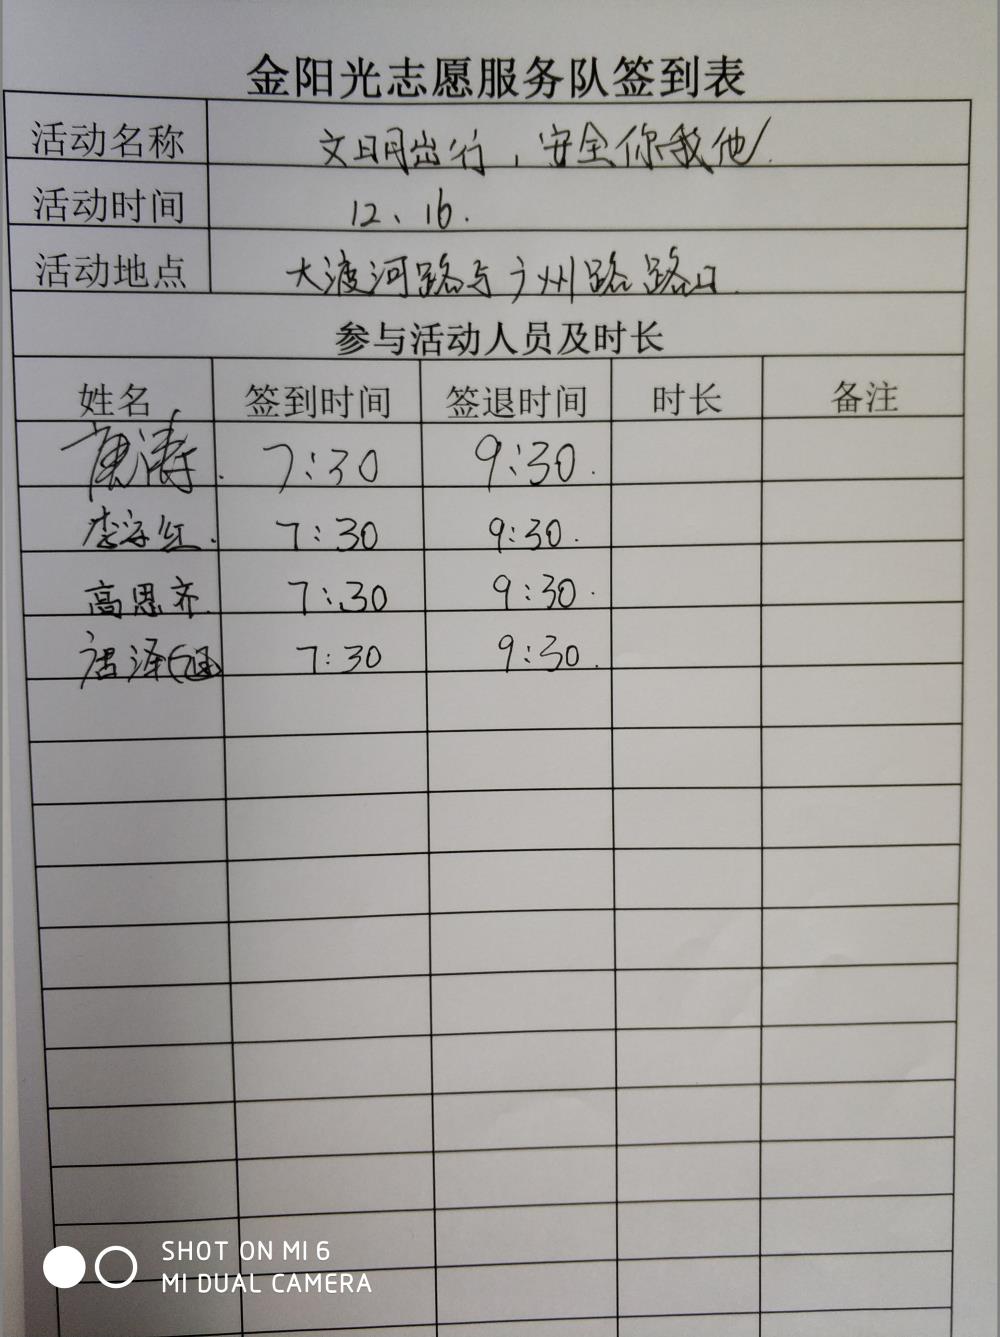 金阳光志愿服务队签到表
活动名称 文明出行，安全你我他
活动时间 12、16.
活动地点 大渡河路与广州路路口
参与活动人员及时长
姓名 签到时间 签退时间 时长 备注
唐涛. 7:30 9:30.
李 红. 7:30 9:30.
高恩齐. 7:30 9:30.
唐泽涵 7:30 9:30.
SHOT ON MI 6
MI DUAL CAMERA